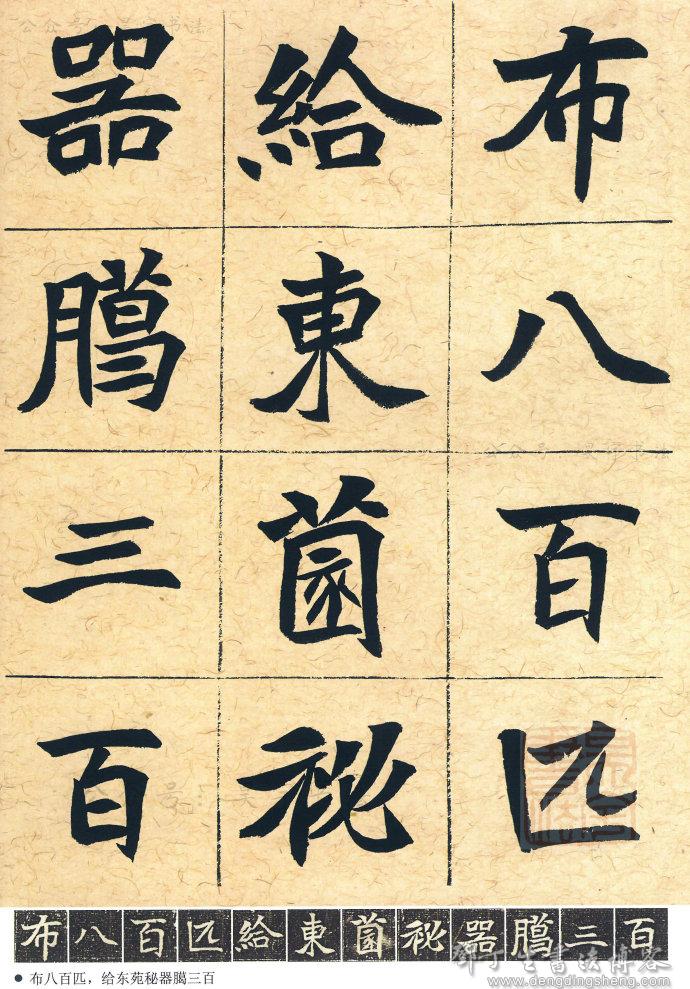 布八百匹
給東薗祕
器臈三百
布八百匹給東薗祕器臈三百
● 布八百匹，给东苑秘器臈三百
鄧丁生書法博客
www.dengdingsheng.com